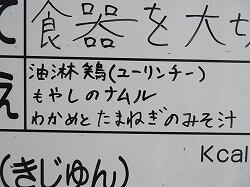 て 食器を大
え 油淋鶏(ユーリンチー)
もやしのナムル
わかめとたまねぎのみそ汁
Kcal
(きじゅん)